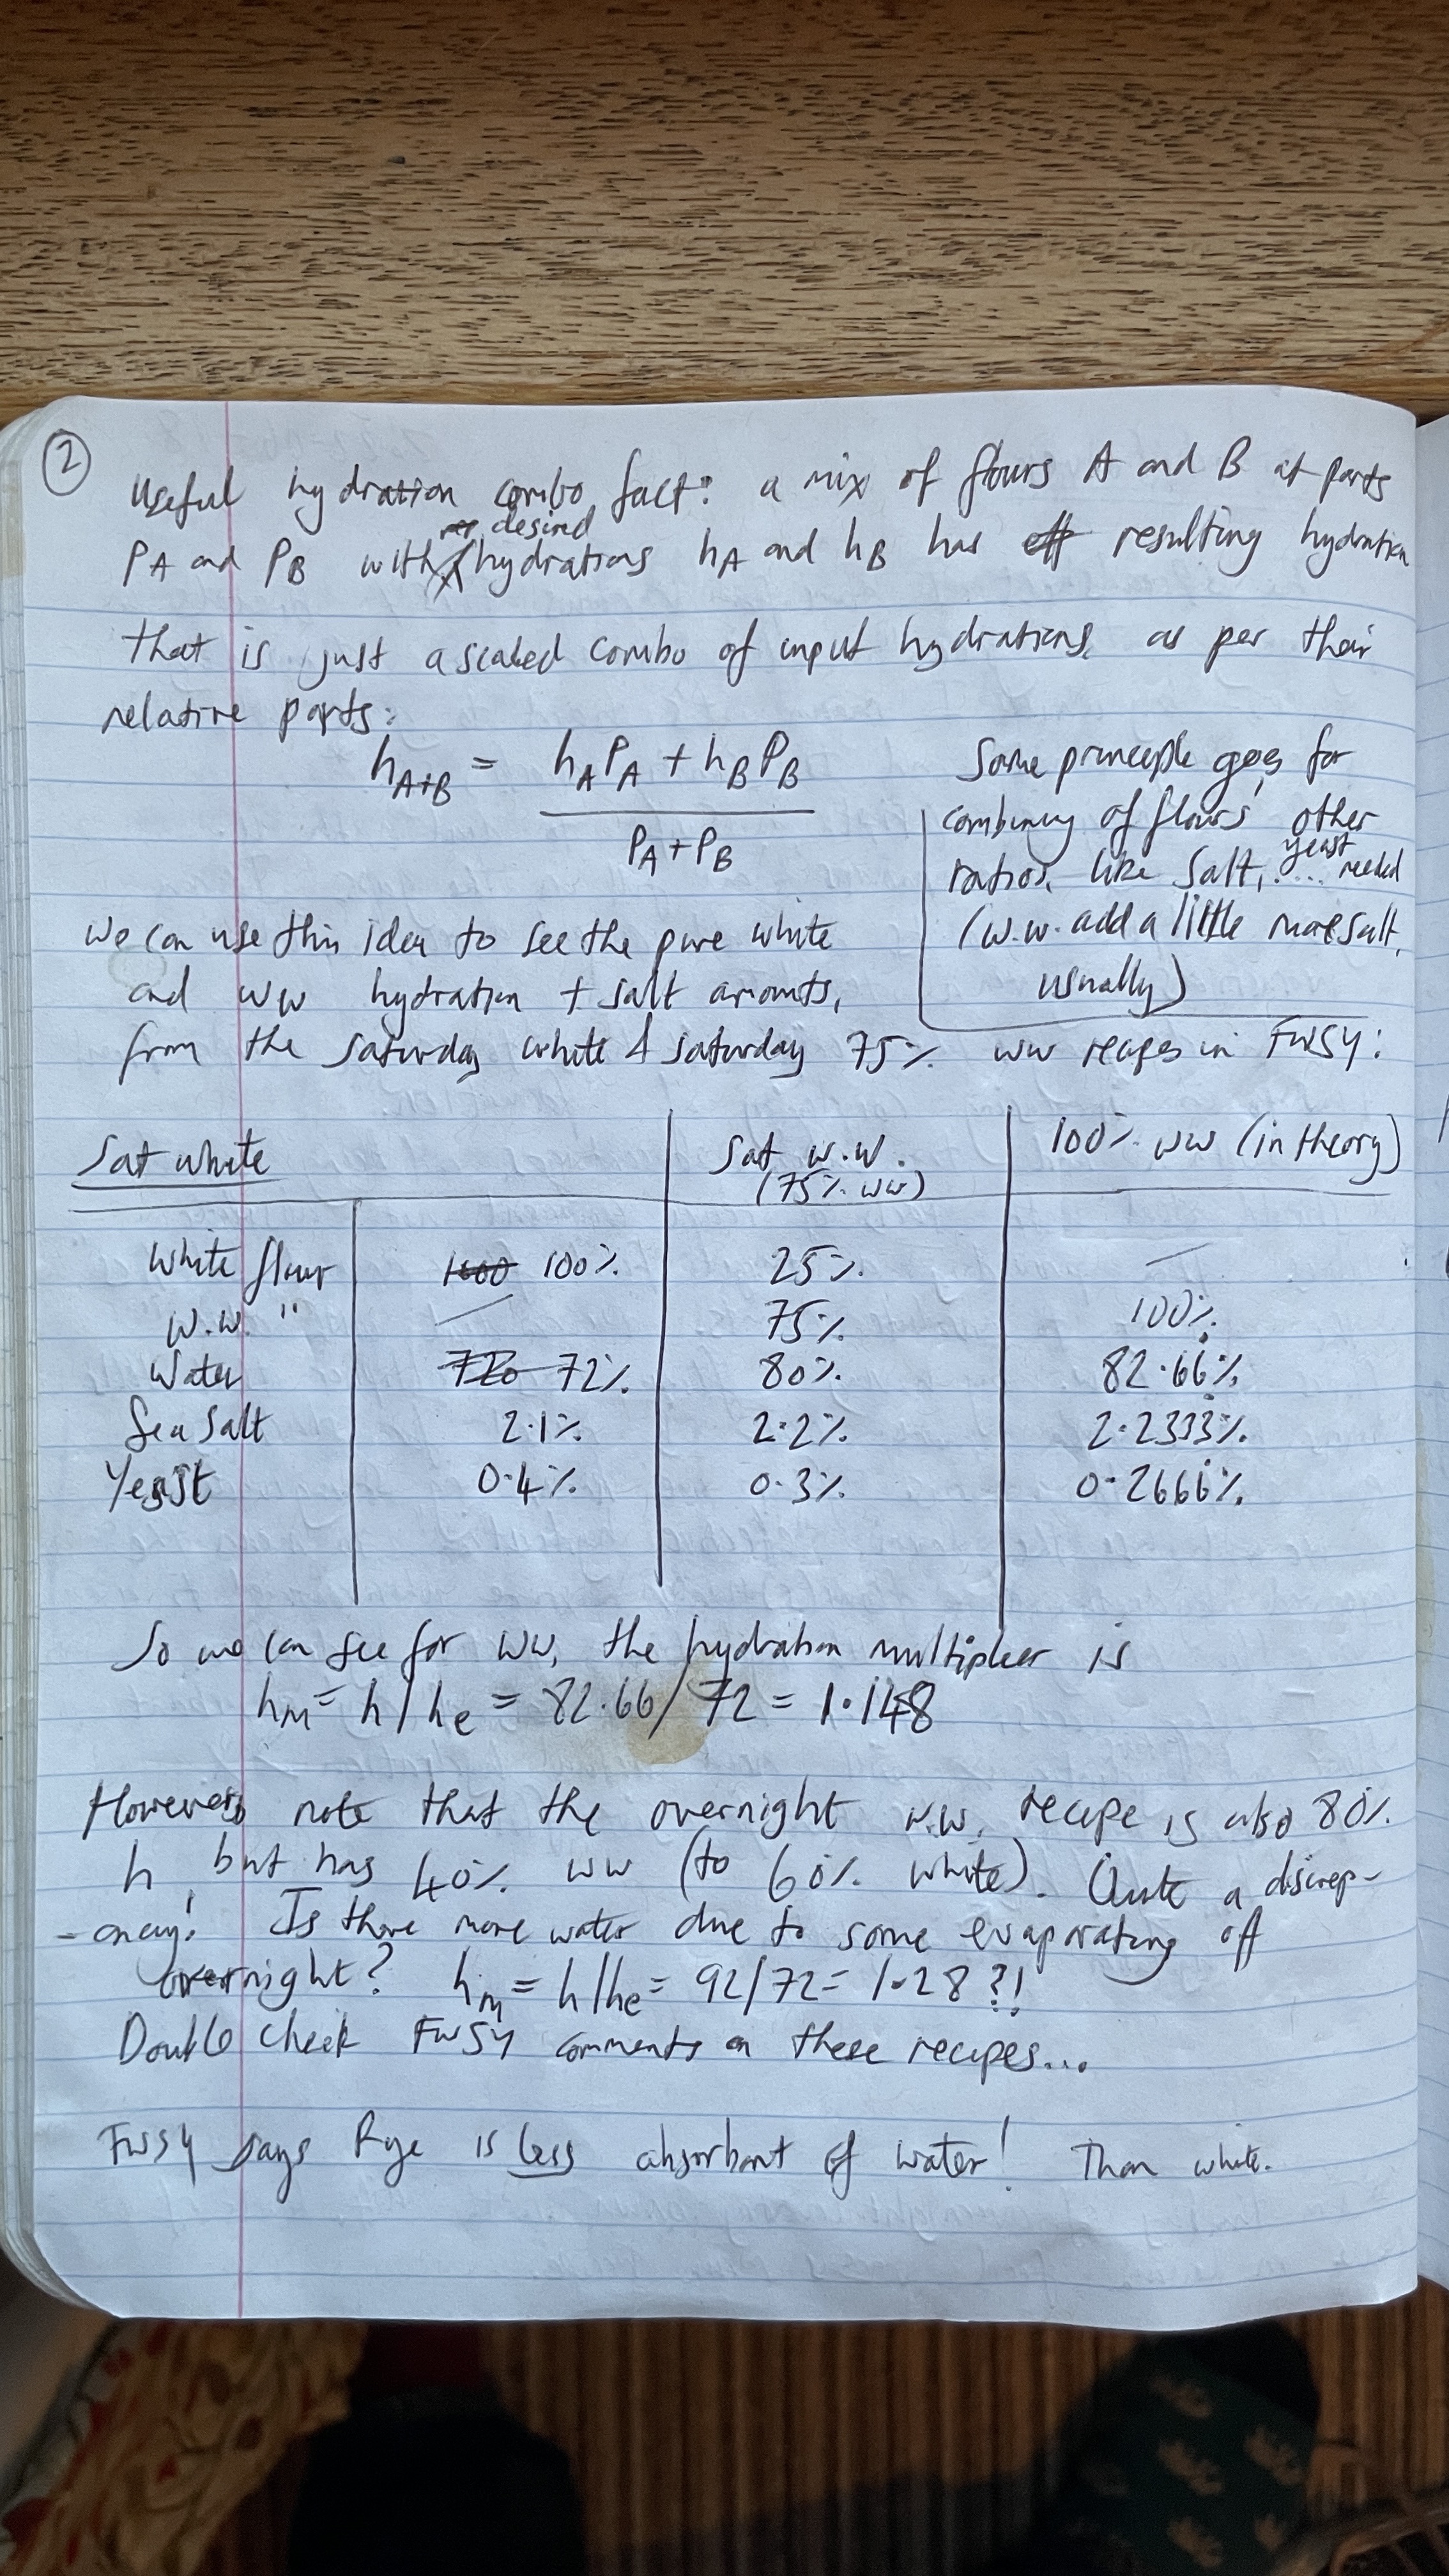 2
Useful hydration combo fact: a mix of flours A and B at parts
desired
PA and PB with hydrations hA and hB has eff resulting hydration
that is just a scaled combo of input hydrations, as per their
relative parts:
hA+B = hAPA + hBPB
PA + PB
Same principle goes for
combining of flours' other
ratios, like salt, yeast ... needed
(w.w. add a little more salt,
usually)
We can use this idea to see the pure white
and ww hydration + salt amounts,
from the Saturday white & Saturday 75% ww recipes in FWSY:
Sat white | Sat w.w. (75% ww) | 100% ww (in theory)
White flour | 1000 100% | 25% | —
W.W. " | — | 75% | 100%
Water | 720 72% | 80% | 82.66̇%
Sea Salt | 2.1% | 2.2% | 2.2333̇%
Yeast | 0.4% | 0.3% | 0.2666̇%
So we can see for ww, the hydration multiplier is
hm = h/he = 82.66/72 = 1.148
However, note that the overnight w.w. recipe is also 80%
h, but has 40% ww (to 60% white). Quite a discrep-
-ancy! Is there more water due to some evaporating off
overnight? hm = h/he = 92/72 = 1.28?!
Double check FWSY comments on these recipes...
FWSY says Rye is less absorbant of water! Than white.